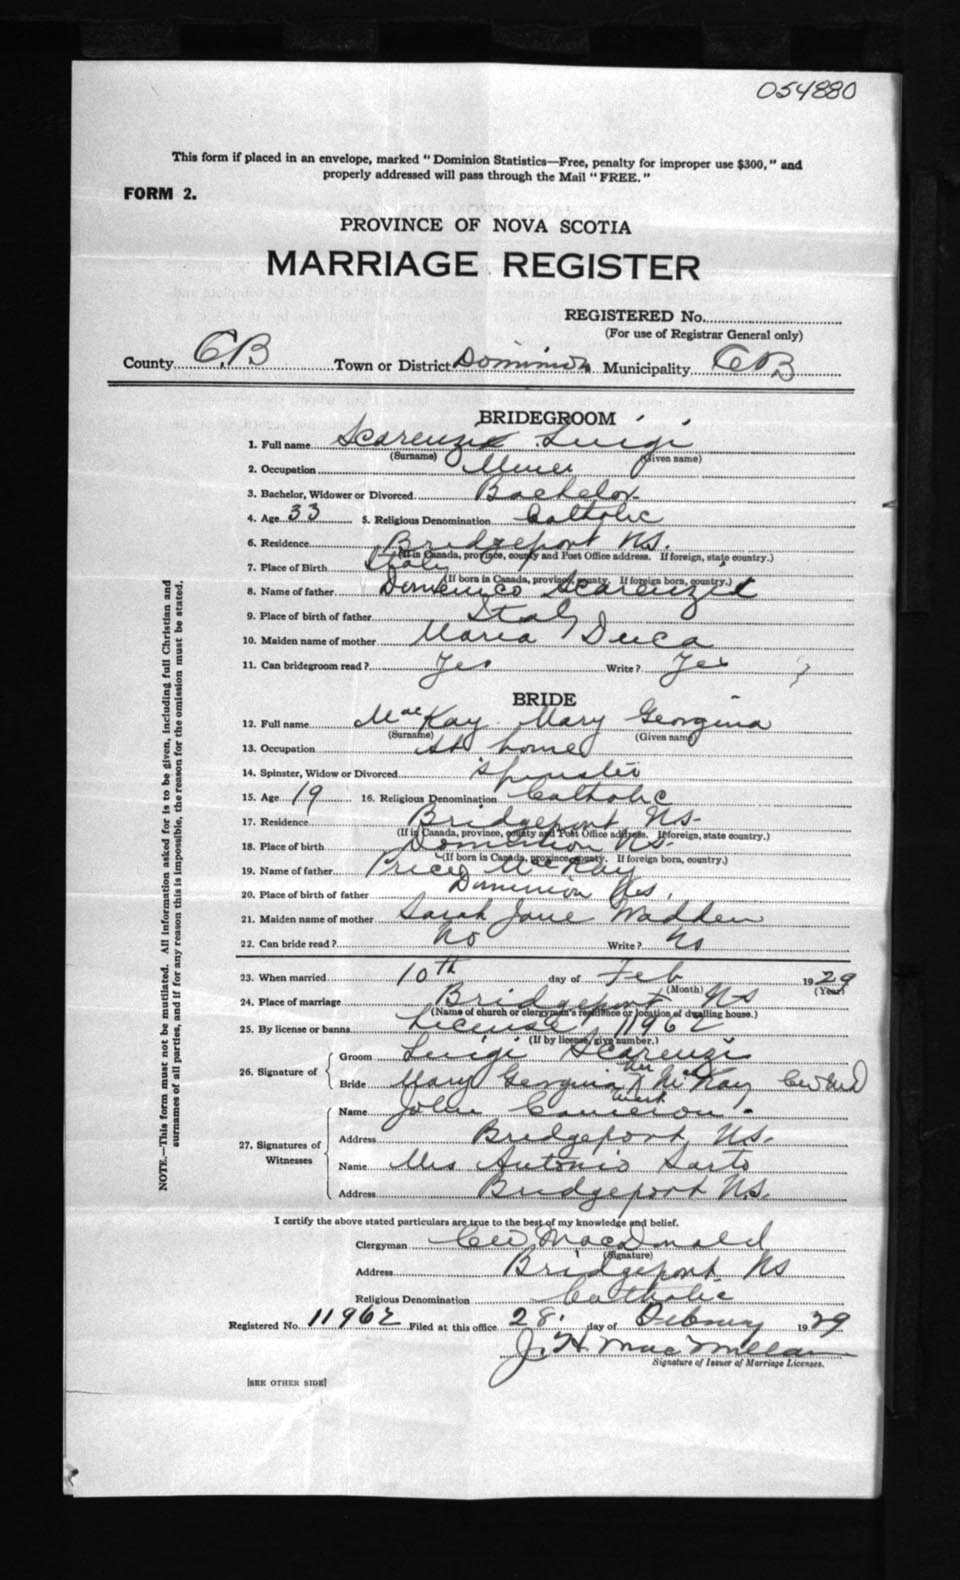 054880
This form if placed in an envelope, marked "Dominion Statistics—Free, penalty for improper use $300," and
properly addressed will pass through the Mail "FREE."
FORM 2.
PROVINCE OF NOVA SCOTIA
MARRIAGE REGISTER
REGISTERED No.
(For use of Registrar General only)
County C.B Town or District Dominion Municipality C.B
BRIDEGROOM
1. Full name Scarenzi Luigi
(Surname) (Given name)
2. Occupation Miner
3. Bachelor, Widower or Divorced Bachelor
4. Age 33 5. Religious Denomination Catholic
6. Residence Bridgeport N.S.
(If in Canada, province, county and Post Office address. If foreign, state country.)
7. Place of Birth Italy
(If born in Canada, province, county. If foreign born, country.)
8. Name of father Domenico Scarenzi
9. Place of birth of father Italy
10. Maiden name of mother Maria Duca
11. Can bridegroom read? Yes Write? Yes
BRIDE
12. Full name MacKay Mary Georgina
(Surname) (Given name)
13. Occupation At home
14. Spinster, Widow or Divorced Spinster
15. Age 19 16. Religious Denomination Catholic
17. Residence Bridgeport N.S.
(If in Canada, province, county and Post Office address. If foreign, state country.)
18. Place of birth Dominion N.S.
(If born in Canada, province, county. If foreign born, country.)
19. Name of father Price MacKay
20. Place of birth of father Dominion N.S.
21. Maiden name of mother Sarah Jane Wadden
22. Can bride read? No Write? No
23. When married 10th day of Feb 1929
(Month) (Year)
24. Place of marriage Bridgeport NS
(Name of church or clergyman's residence or location of dwelling house.)
25. By license or banns License 11962
(If by license, give number.)
26. Signature of
Groom Luigi Scarenzi
Bride Mary Georgina her X mark McKay
27. Signatures of Witnesses
Name John Cameron
Address Bridgeport, N.S.
Name Mrs Antonio Sarto
Address Bridgeport N.S.
I certify the above stated particulars are true to the best of my knowledge and belief.
Clergyman CW MacDonald
(Signature)
Address Bridgeport NS
Religious Denomination Catholic
Registered No. 11962 Filed at this office 28. day of February 1929
J. H. MacMillan
Signature of Issuer of Marriage Licenses.
[SEE OTHER SIDE]
NOTE.—This form must not be mutilated. All information asked for is to be given, including full Christian and
surnames of all parties, and if for any reason this is impossible, the reason for the omission must be stated.